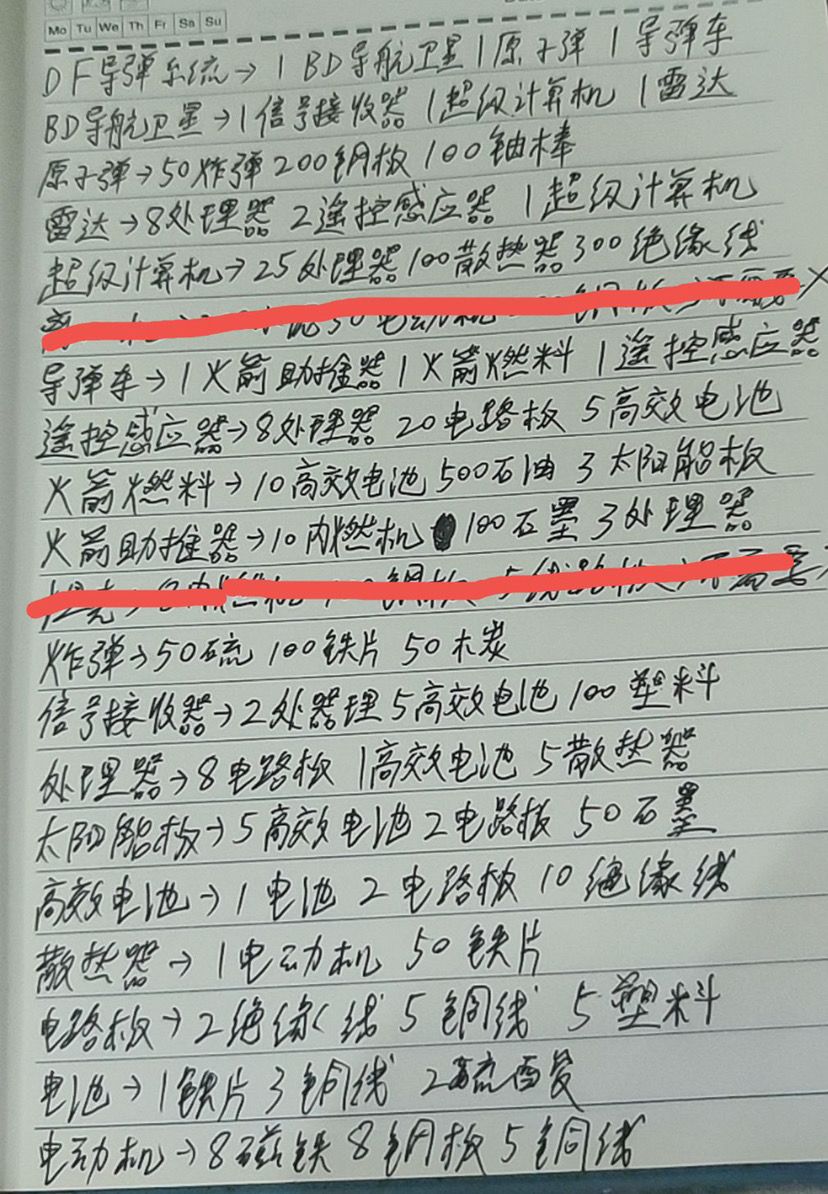 Mo Tu We Th Fr Sa Su
DF导弹系统→1 BD导航卫星 1原子弹 1导弹车
BD导航卫星→1信号接收器 1超级计算机 1雷达
原子弹→50炸弹 200钢板 100铀棒
雷达→8处理器 2遥控感应器 1超级计算机
超级计算机→25处理器 100散热器 300绝缘线
导弹车→1火箭助推器 1火箭燃料 1遥控感应器
遥控感应器→8处理器 20电路板 5高效电池
火箭燃料→10高效电池 500石油 3太阳能板
火箭助推器→10内燃机 100石墨 3处理器
炸弹→50硫 100铁片 50木炭
信号接收器→2处器理 5高效电池 100塑料
处理器→8电路板 1高效电池 5散热器
太阳能板→5高效电池 2电路板 50石墨
高效电池→1电池 2电路板 10绝缘线
散热器→1电动机 50铁片
电路板→2绝缘线 5铜线 5塑料
电池→1铁片 3铜线 2硫酸
电动机→8磁铁 8钢板 5铜线